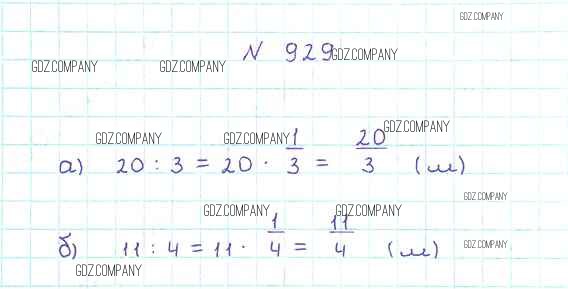 GDZ.COMPANY
N 929 GDZ.COMPANY
GDZ.COMPANY GDZ.COMPANY
GDZ.COMPANY GDZ.COMPANY GDZ.COMPANY
а) 20 : 3 = 20 · 1/3 = 20/3 (м)
GDZ.COMPANY
GDZ.COMPANY GDZ.COMPANY
б) 11 : 4 = 11 · 1/4 = 11/4 (м)
GDZ.COMPANY
GDZ.COMPANY